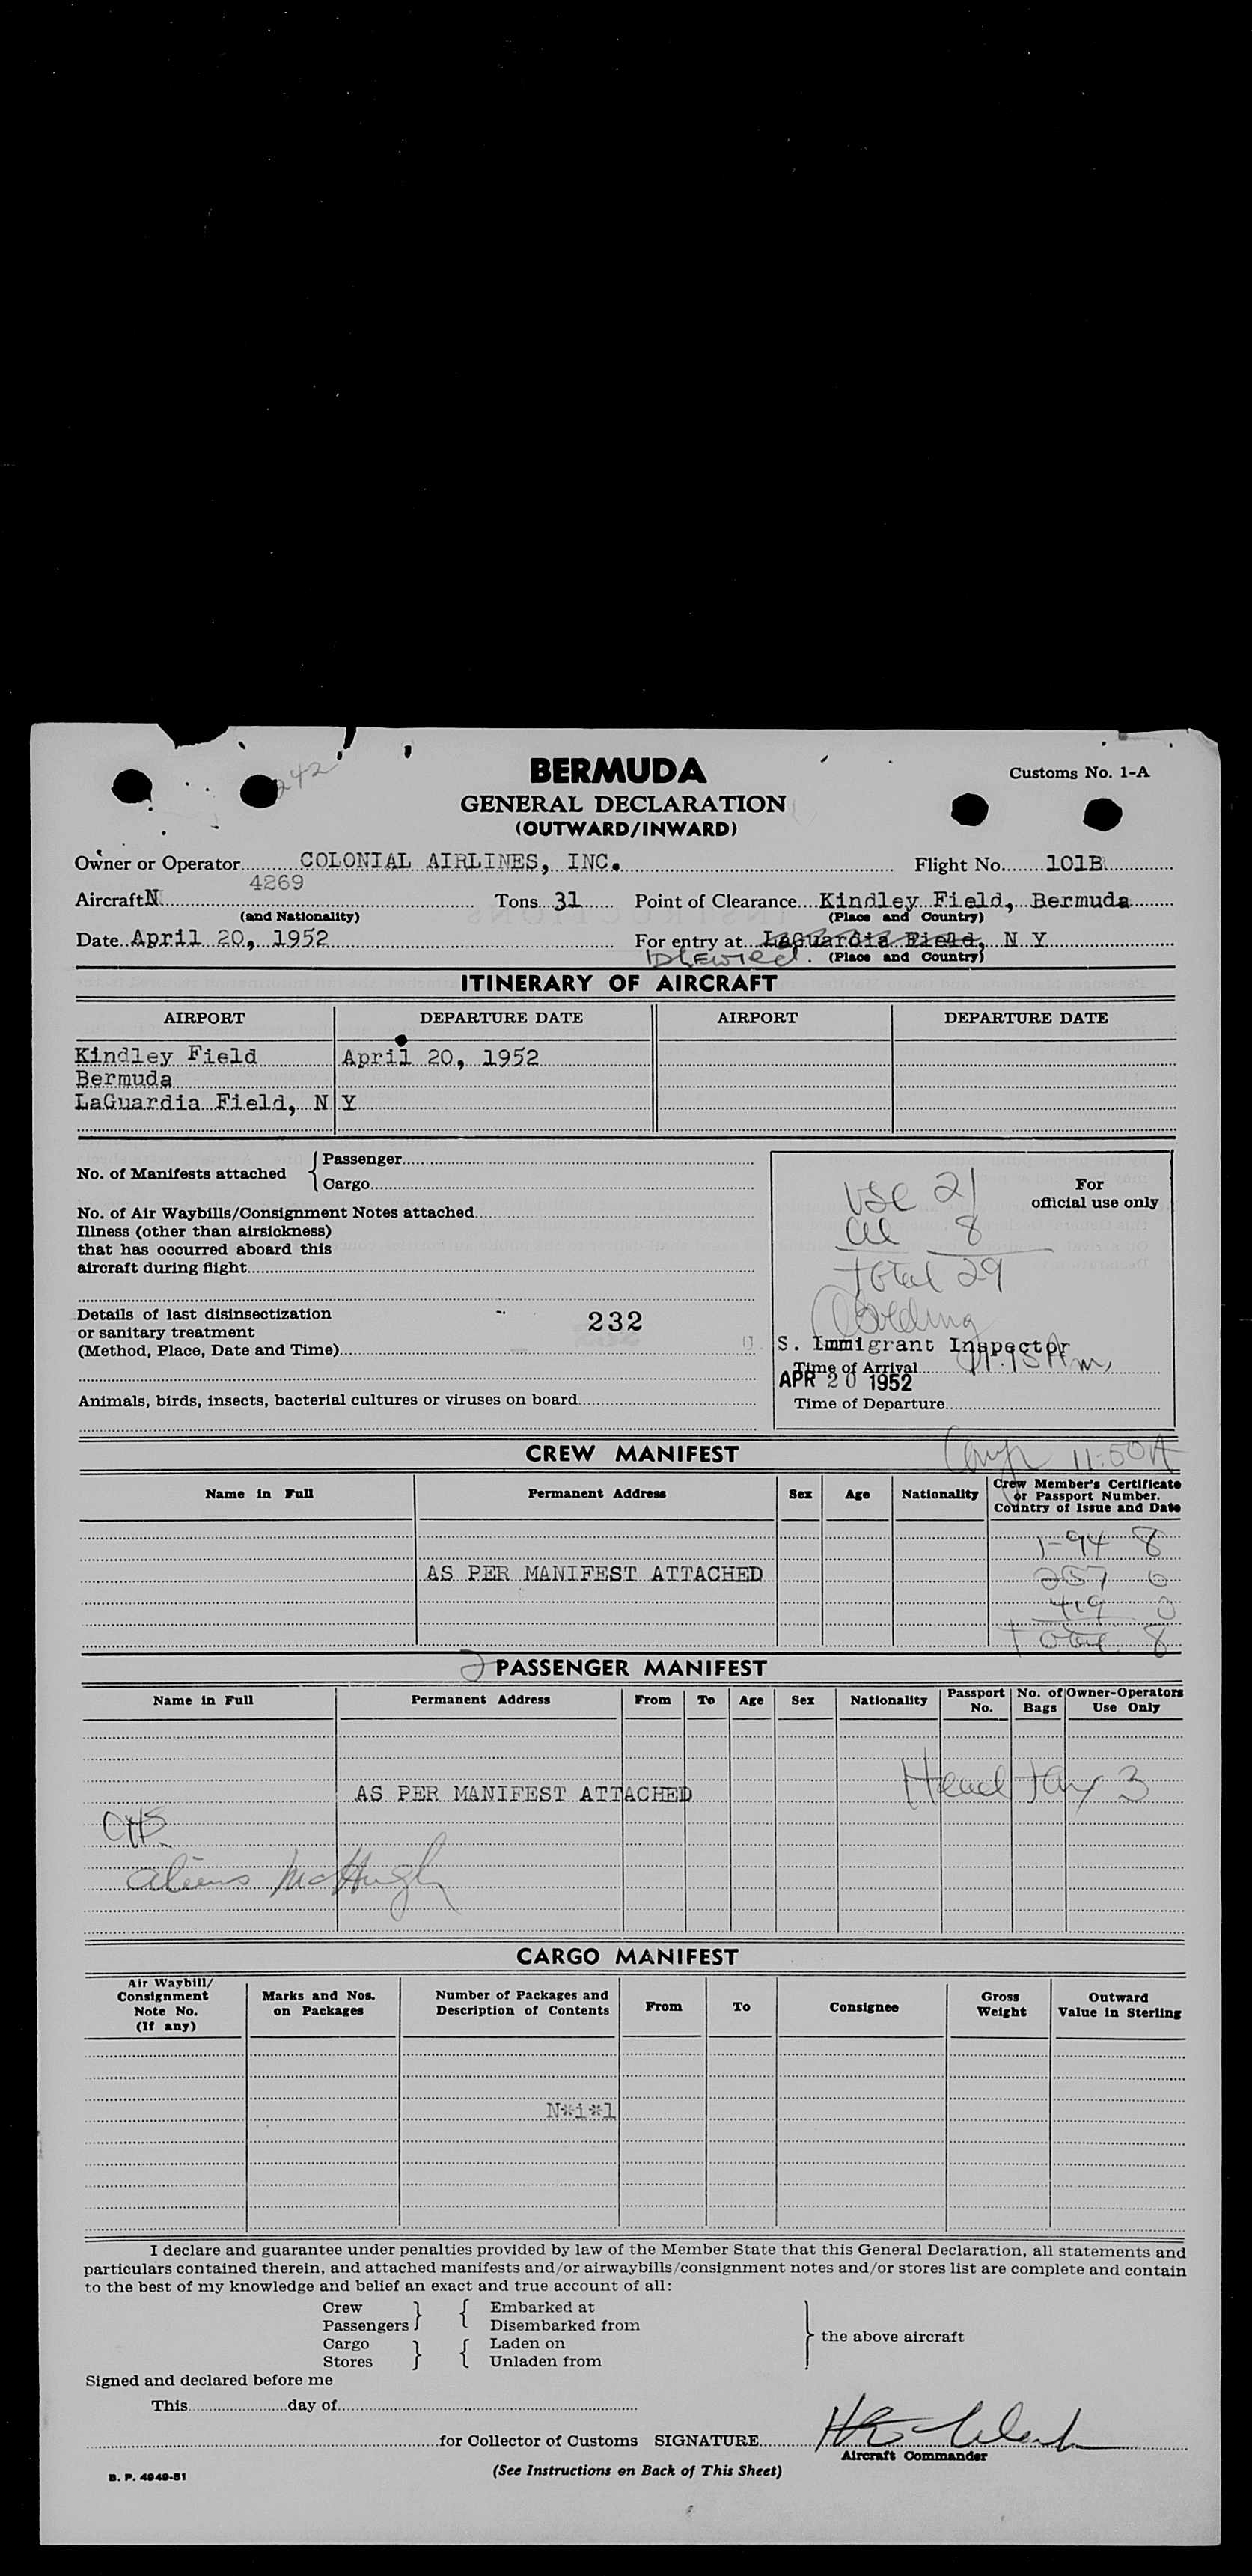 242
BERMUDA
Customs No. 1-A
GENERAL DECLARATION
(OUTWARD/INWARD)
Owner or Operator COLONIAL AIRLINES, INC. Flight No. 101B
Aircraft N 4269 Tons 31 Point of Clearance Kindley Field, Bermuda
(and Nationality) (Place and Country)
Date April 20, 1952 For entry at LaGuardia Field, N Y
IDLEWILD. (Place and Country)
ITINERARY OF AIRCRAFT
AIRPORT DEPARTURE DATE AIRPORT DEPARTURE DATE
Kindley Field April 20, 1952
Bermuda
LaGuardia Field, N Y
No. of Manifests attached { Passenger
Cargo
No. of Air Waybills/Consignment Notes attached
Illness (other than airsickness)
that has occurred aboard this
aircraft during flight
Details of last disinsectization
or sanitary treatment
(Method, Place, Date and Time)
232
Animals, birds, insects, bacterial cultures or viruses on board
For
official use only
USC 21
al 8
total 29
S. Immigrant Inspector
Time of Arrival
APR 20 1952
Time of Departure
11:50A
CREW MANIFEST
Name in Full Permanent Address Sex Age Nationality Crew Member's Certificate
or Passport Number.
Country of Issue and Date
I-94 8
257 0
419 0
Total 8
AS PER MANIFEST ATTACHED
PASSENGER MANIFEST
Name in Full Permanent Address From To Age Sex Nationality Passport No. No. of Bags Owner-Operators Use Only
Head Tax 3
AS PER MANIFEST ATTACHED
aliens McHugh
CARGO MANIFEST
Air Waybill/
Consignment
Note No.
(If any)
Marks and Nos.
on Packages
Number of Packages and
Description of Contents
From To Consignee
Gross
Weight
Outward
Value in Sterling
N*i*l
I declare and guarantee under penalties provided by law of the Member State that this General Declaration, all statements and
particulars contained therein, and attached manifests and/or airwaybills/consignment notes and/or stores list are complete and contain
to the best of my knowledge and belief an exact and true account of all:
Crew } { Embarked at
Passengers Disembarked from
Cargo } { Laden on
Stores Unladen from
} the above aircraft
Signed and declared before me
This day of
for Collector of Customs SIGNATURE
Aircraft Commander
B. P. 4949-51
(See Instructions on Back of This Sheet)